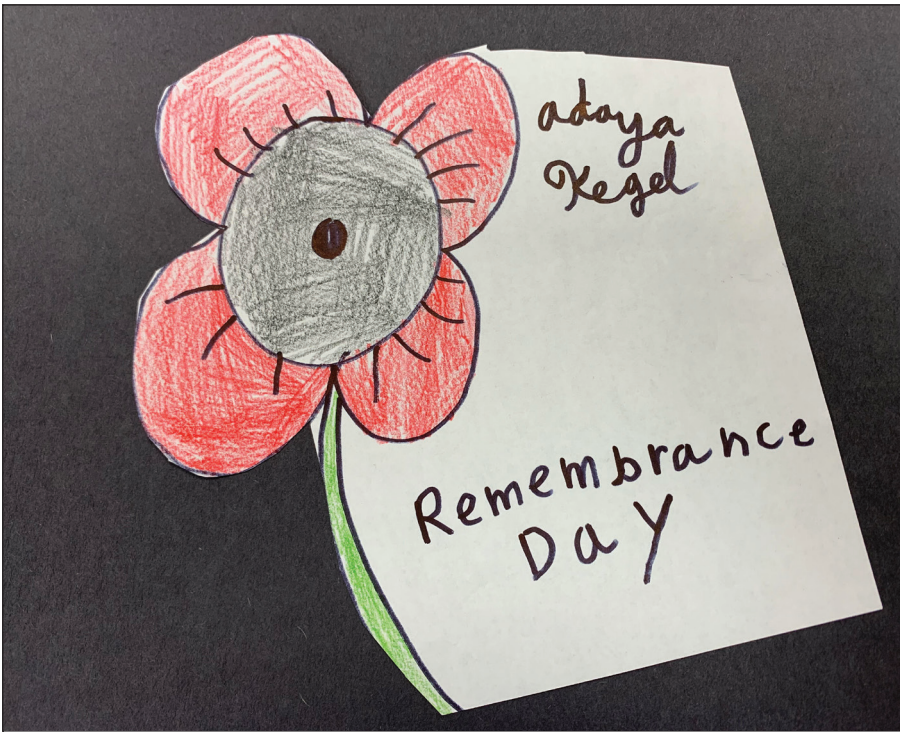 adaya
Kegel
Remembrance
Day